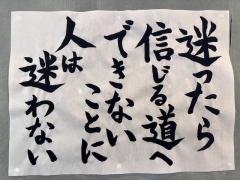 迷ったら
信じる道へ
できない
ことに
人は
迷わない